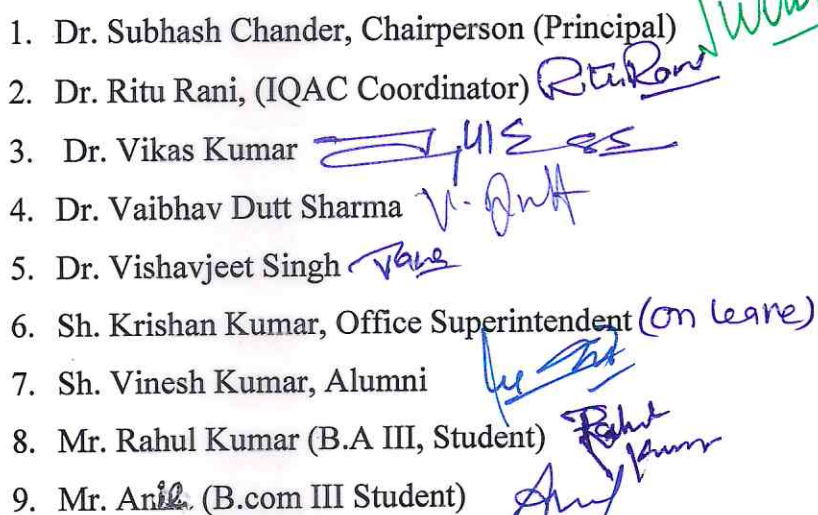 1. Dr. Subhash Chander, Chairperson (Principal)
2. Dr. Ritu Rani, (IQAC Coordinator) Ritu Rani
3. Dr. Vikas Kumar
4. Dr. Vaibhav Dutt Sharma V. Dutt
5. Dr. Vishavjeet Singh
6. Sh. Krishan Kumar, Office Superintendent (on leave)
7. Sh. Vinesh Kumar, Alumni
8. Mr. Rahul Kumar (B.A III, Student) Rahul Kumar
9. Mr. Anil. (B.com III Student) Anil